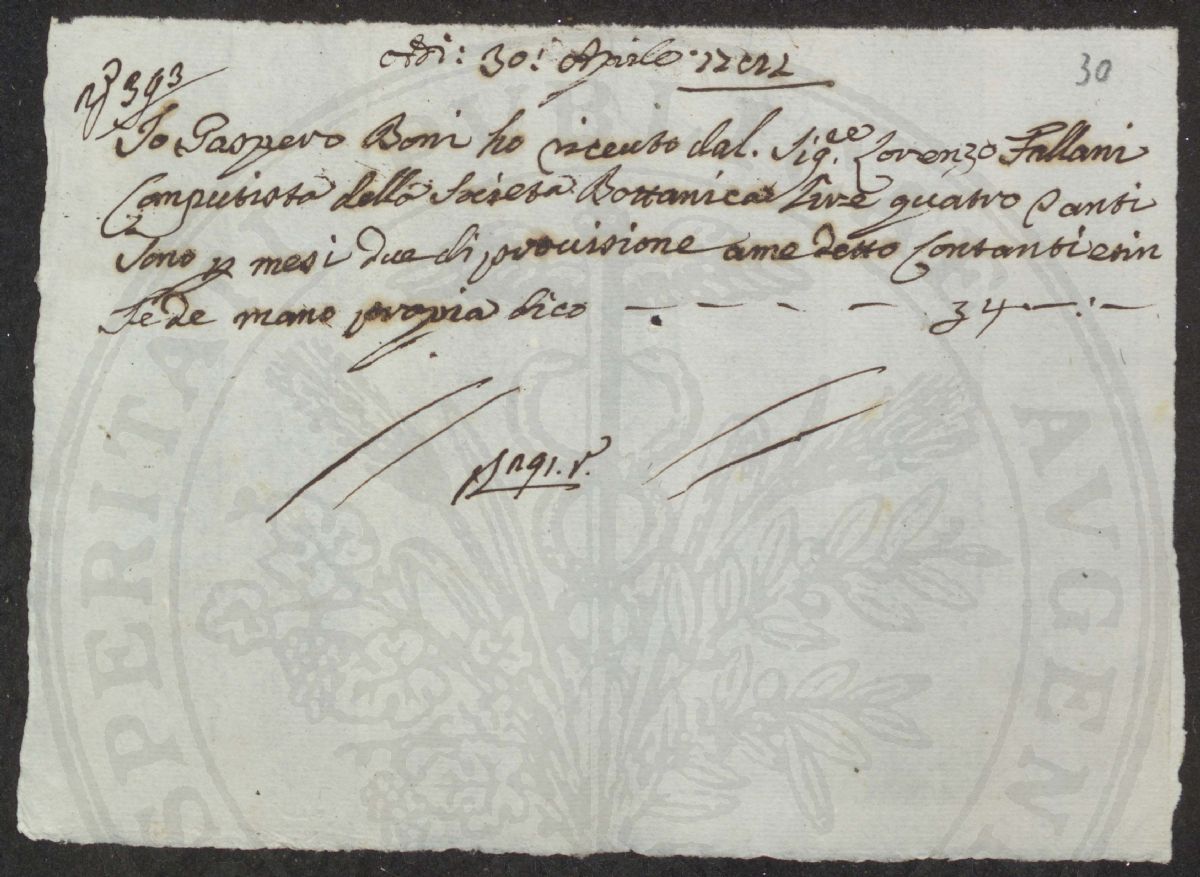 Adi: 30: Aprile
30
393
Io Gaspero Boni ho riceuto dal. Sig.re Lorenzo Fallani
Conputista della Società Bottanica Lire quatro e anti
sono p mesi due di provissione ame detto Contanti et in
fede mano propia dico — — — — — 4 — : —